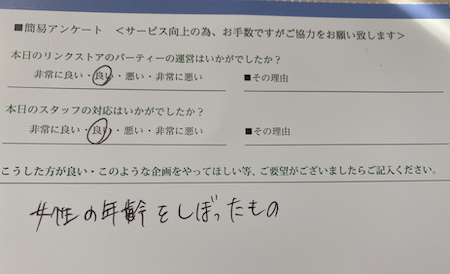 ■簡易アンケート　＜サービス向上の為、お手数ですがご協力をお願い致します＞
本日のリンクストアのパーティーの運営はいかがでしたか？
非常に良い・良い・悪い・非常に悪い　■その理由
本日のスタッフの対応はいかがでしたか？
非常に良い・良い・悪い・非常に悪い　■その理由
こうした方が良い・このような企画をやってほしい等、ご要望がございましたらご記入ください。
女性の年齢をしぼったもの